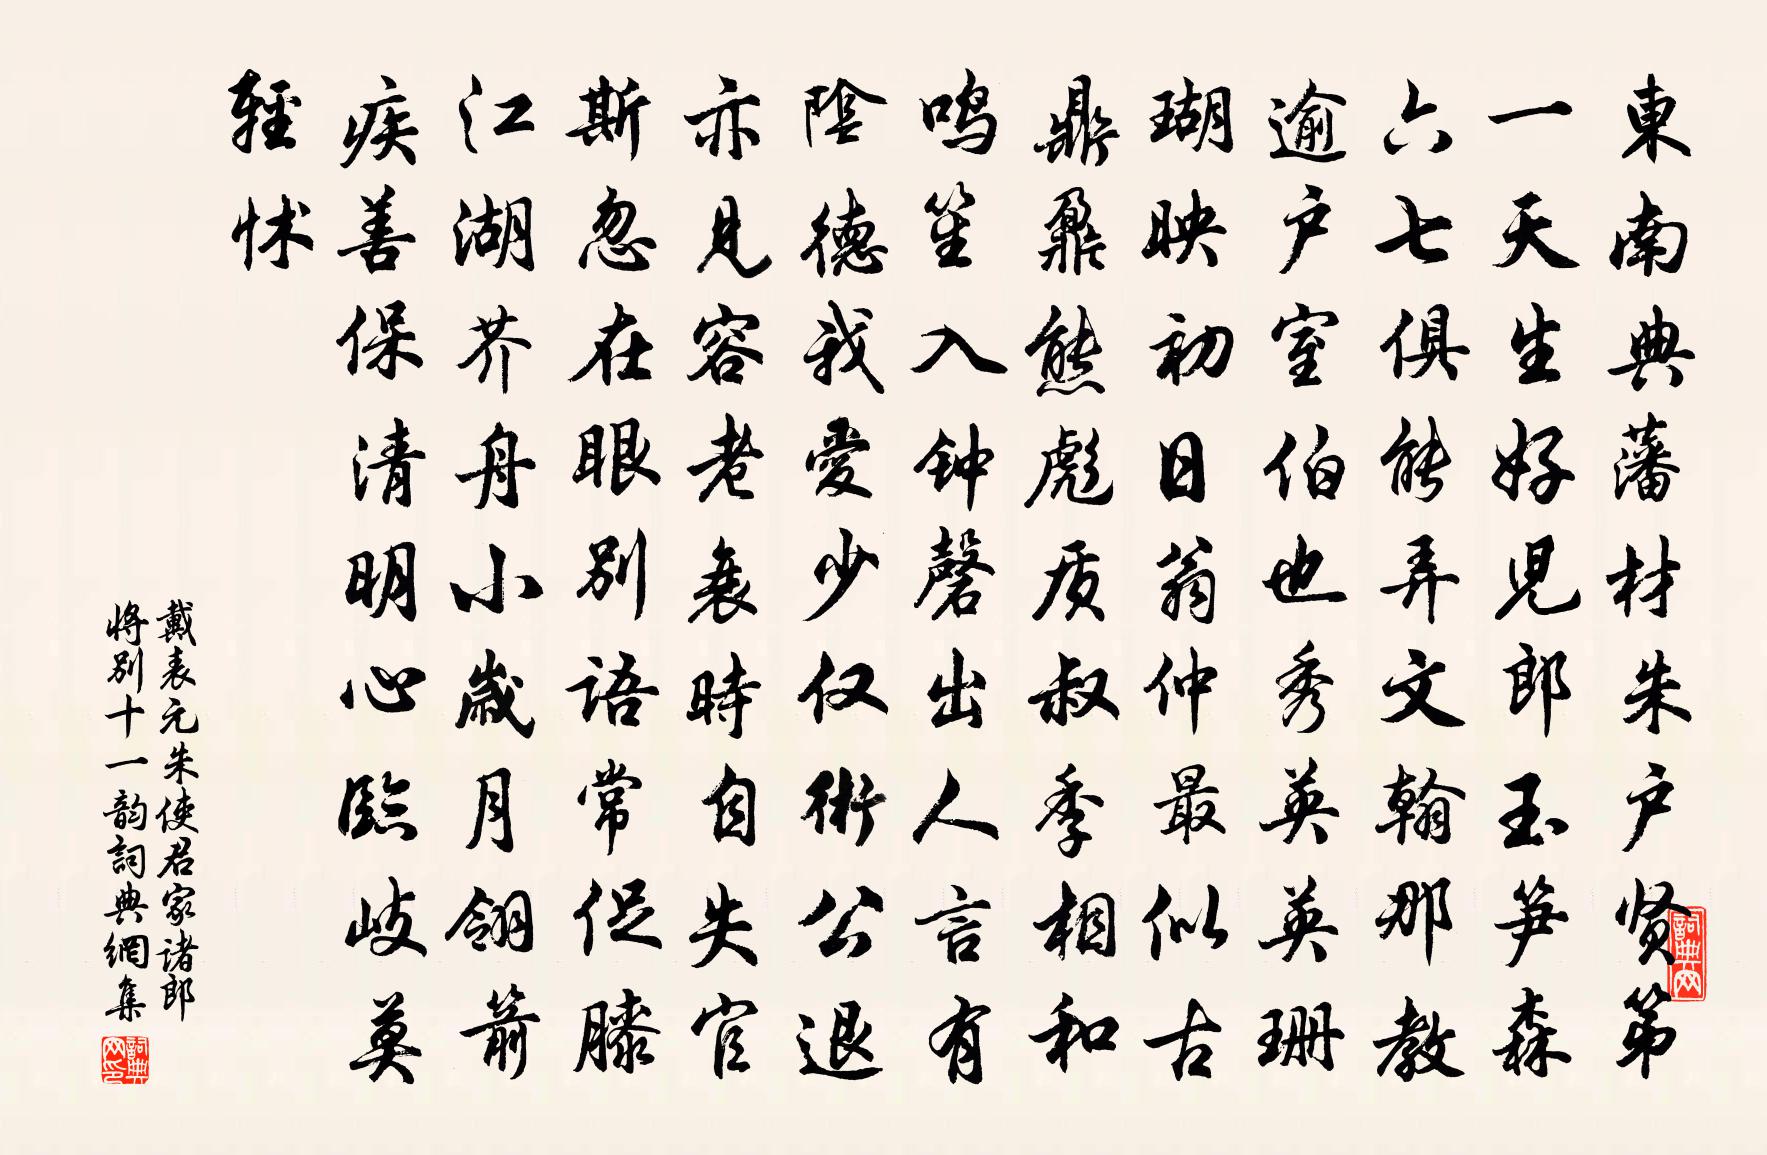 東南典藩材朱户贤第
一天生好児郎玉笋森
六七俱能弄文翰那教
逾户室伯也秀英英珊
瑚映初日翁仲最似古
鼎鼐熊彪质叔季相和
鸣笙入钟磬出人言有
陰德我愛少仅術公退
亦見容老衰時自失官
斯忽在眼别語常促膝
江湖芥舟小歲月翎箭
疾善保清明心臨岐莫
輕怵
戴表元朱使君家诸郎
将别十一韵詞典網集
詞典网
詞典网印